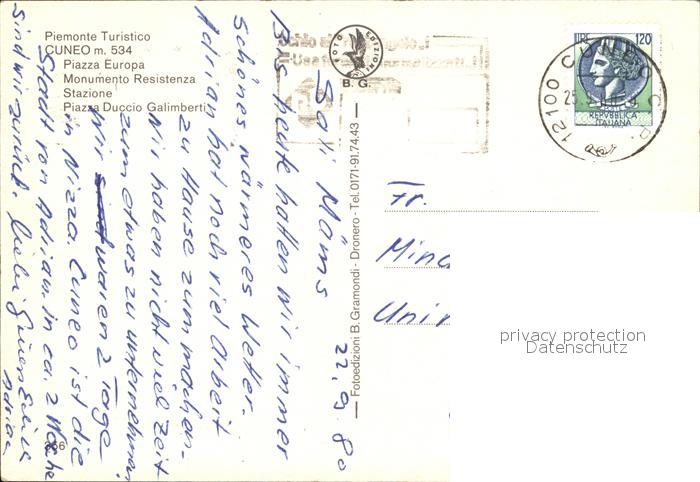 Piemonte Turistico
CUNEO m. 534
Piazza Europa
Monumento Resistenza
Stazione
Piazza Duccio Galimberti
FOTO EDIZIONI
B. G.
LIRE 120
REPVBBLICA
ITALIANA
12100 CUNEO C.P.
Fotoedizioni B. Gramondi - Dronero - Tel. 0171-91.74.43
22.9 80
Sali Mäms
Bis heute hatten wir immer
schönes wärmeres Wetter.
Adrian hat noch viel Arbeit
zu Hause zum machen.
Wir haben nicht viel Zeit
zum etwas zu unternehmen.
Wir waren 2 Tage
in Nizza. Cuneo ist die
Stadt von Adrian. in ca. 2 Woche
sind wir zurück. Liebi
Adrian
Fr.
privacy protection
Datenschutz
366